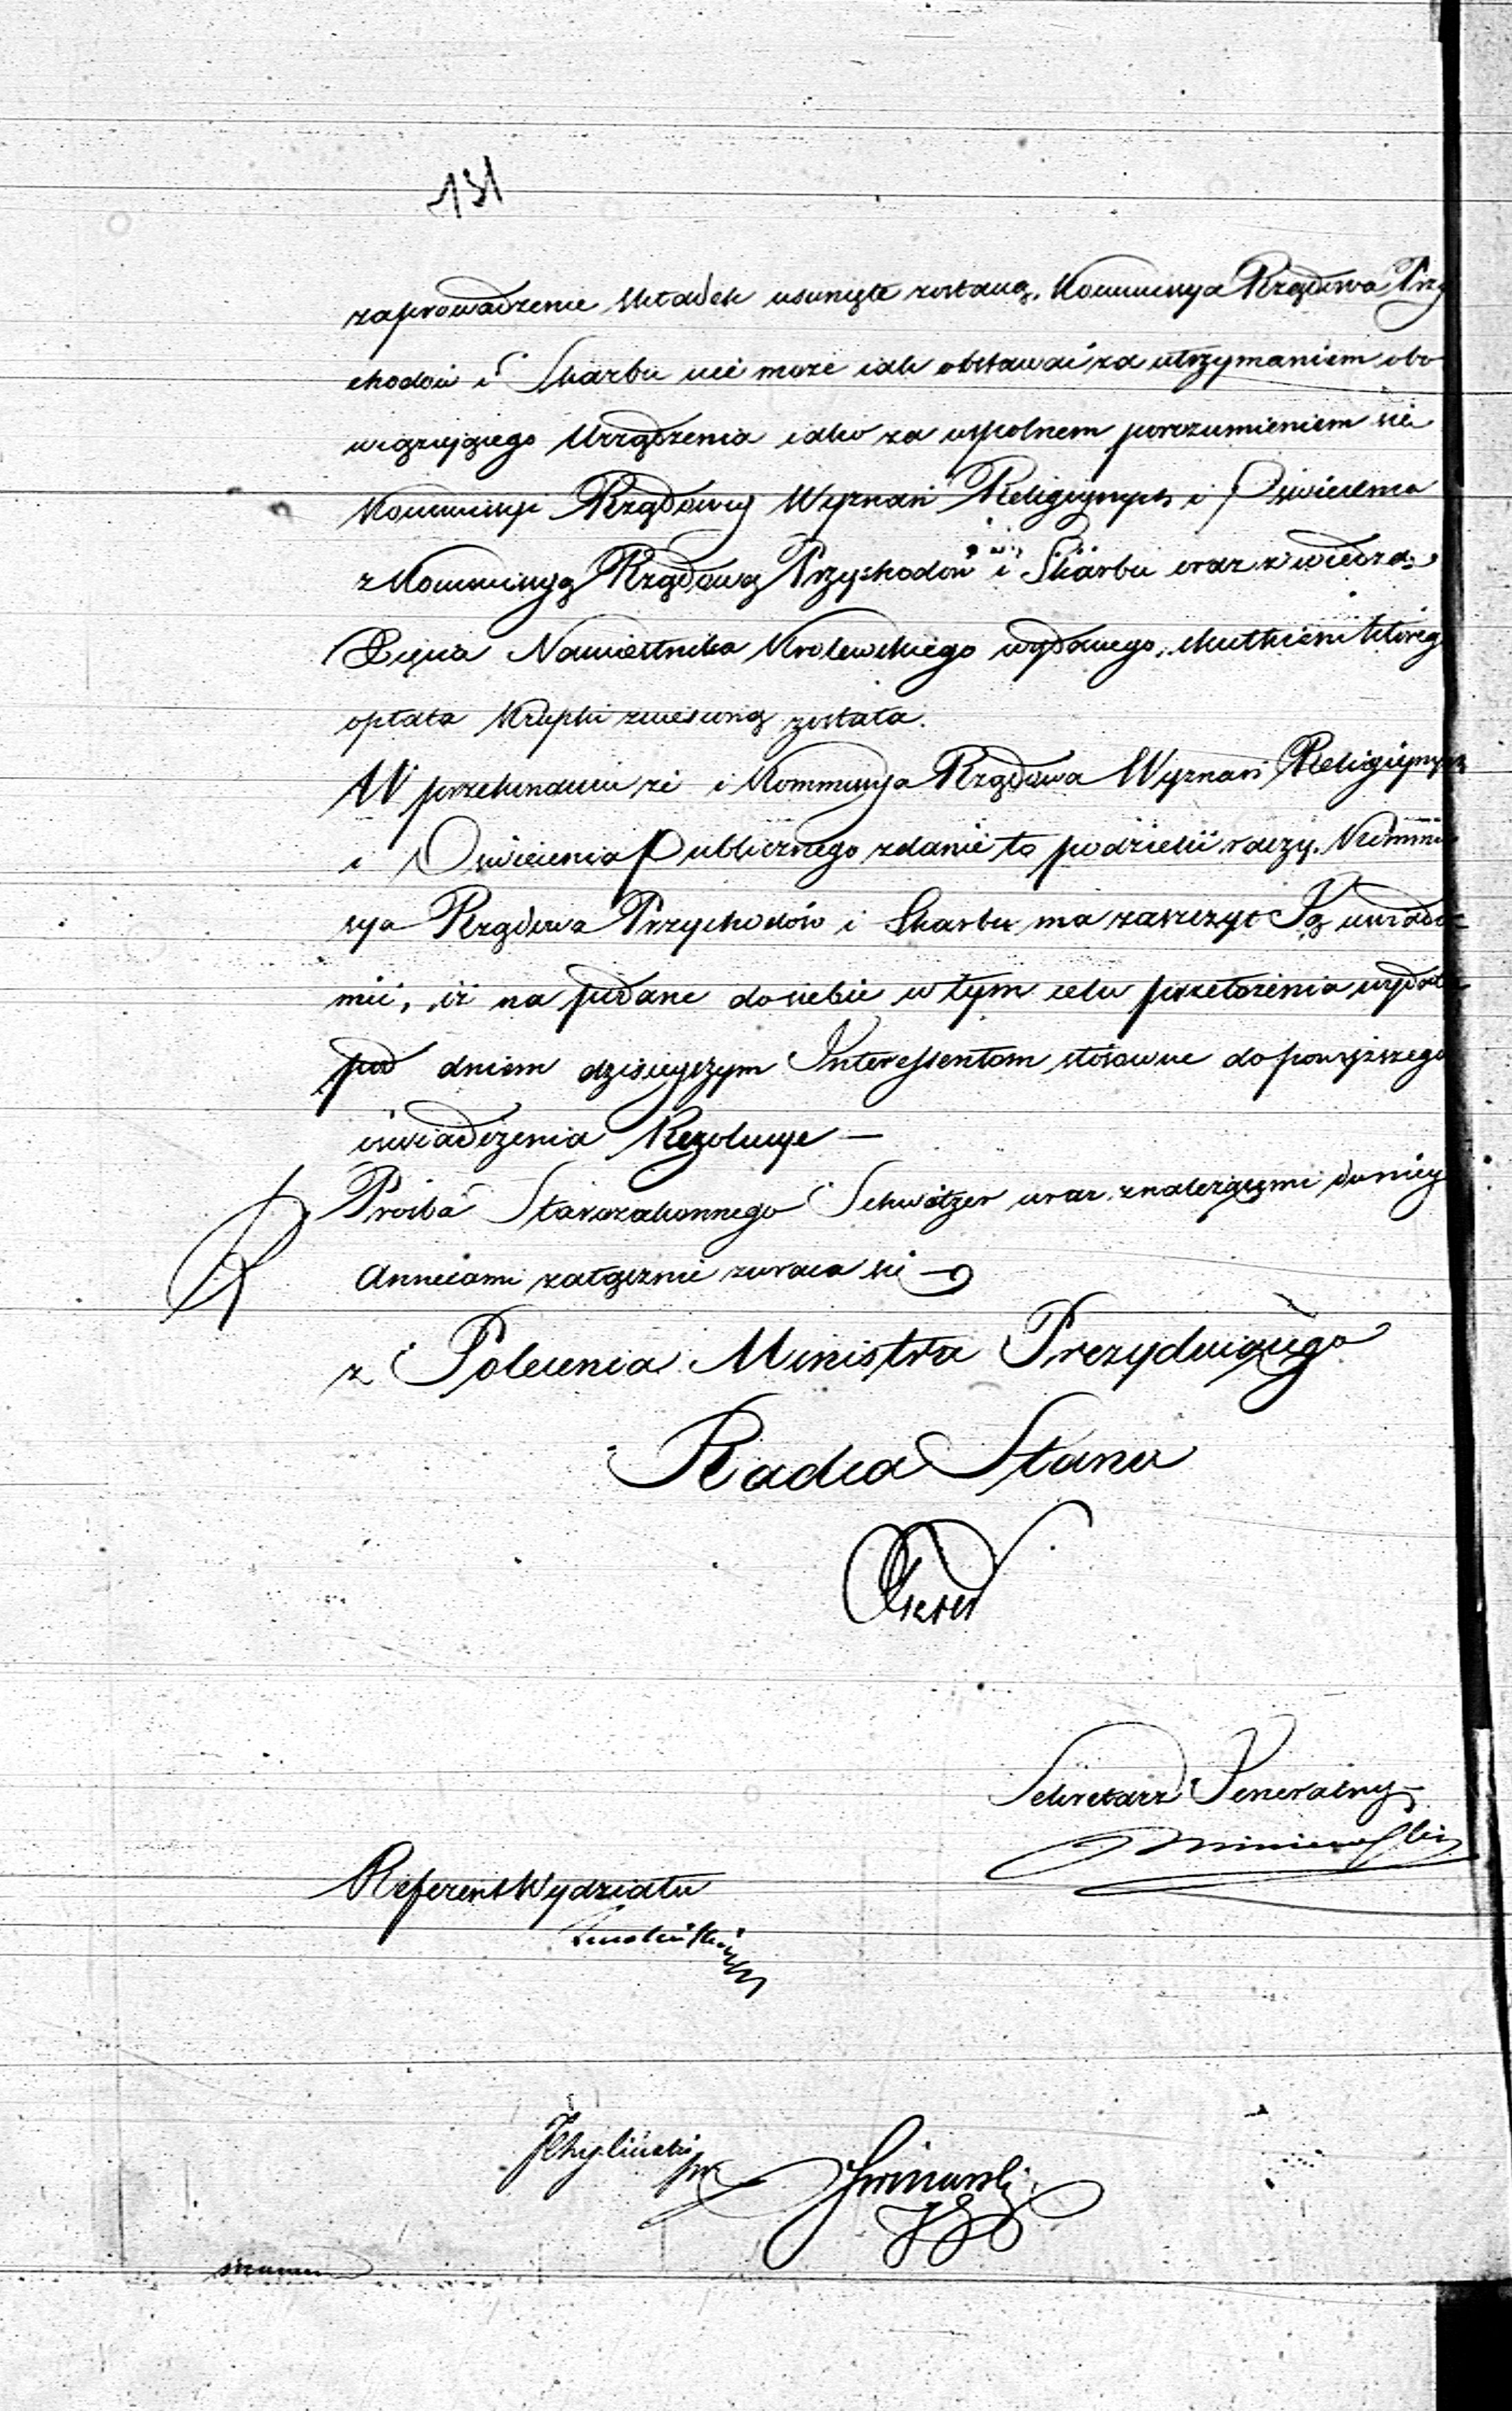 131
zaprowadzenie składek usunięte zostaną. Kommissya Rządowa Przy
chodów i Skarbu nie może iak obstawać za utrzymaniem obo
wiązuiącego Urządzenia iako za wspolnem porozumieniem się
Kommissyi Rządowey Wyznań Religiynych i Oświecenia
z Kommissyą Rządową Przychodów i Skarbu oraz z wiedzą
Xięcia Namiestnika Krolewskiego wydanego, skutkiem którego
opłata Krupki zniesioną została.
W przekonaniu że i Kommissya Rządowa Wyznań Religiynych
i Oświecenia Publicznego zdanie to podzielić raczy. Kommis
sya Rządowa Przychodów i Skarbu ma zaszczyt Ją uwiado
mić, iż na podane do siebie w tym celu przełożenia wydała
pod dniem dzisieyszym Interessentom stósowne do powyższego
oswiadczenia Rezolucye —
Prośba Starozakonnego Schwätzer wraz z należącemi do niey
Annexami załącznie zwraca się
z Polecenia Ministra Prezyduiącego
Radca Stanu
Sekretarz Jeneralny
Referent Wydziału